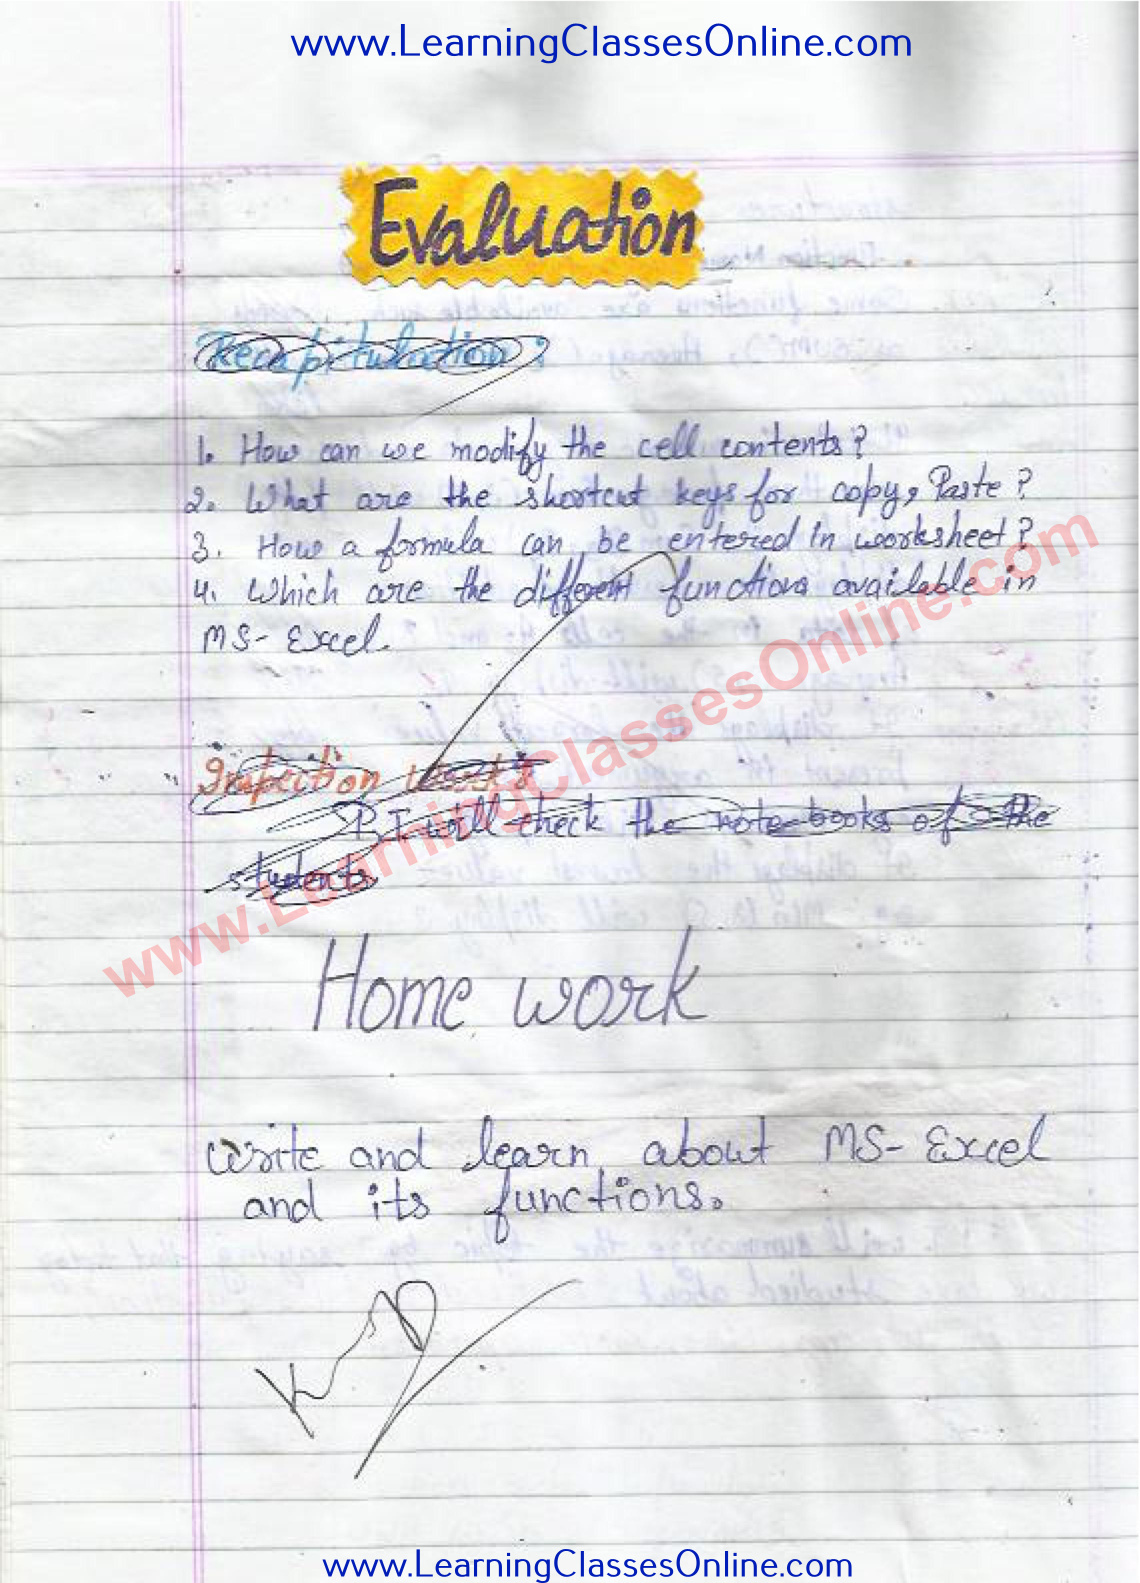 www.LearningClassesOnline.com
Evaluation
Recapitulation :
1. How can we modify the cell contents?
2. What are the shortcut keys for copy, Paste?
3. How a formula can be entered in worksheet?
4. Which are the different functions available in
MS-Excel.
www.LearningClassesOnline.com
Inspection Work:
P.T will check the note-books of the
students.
Home work
Write and learn about MS-Excel
and its functions.
www.LearningClassesOnline.com